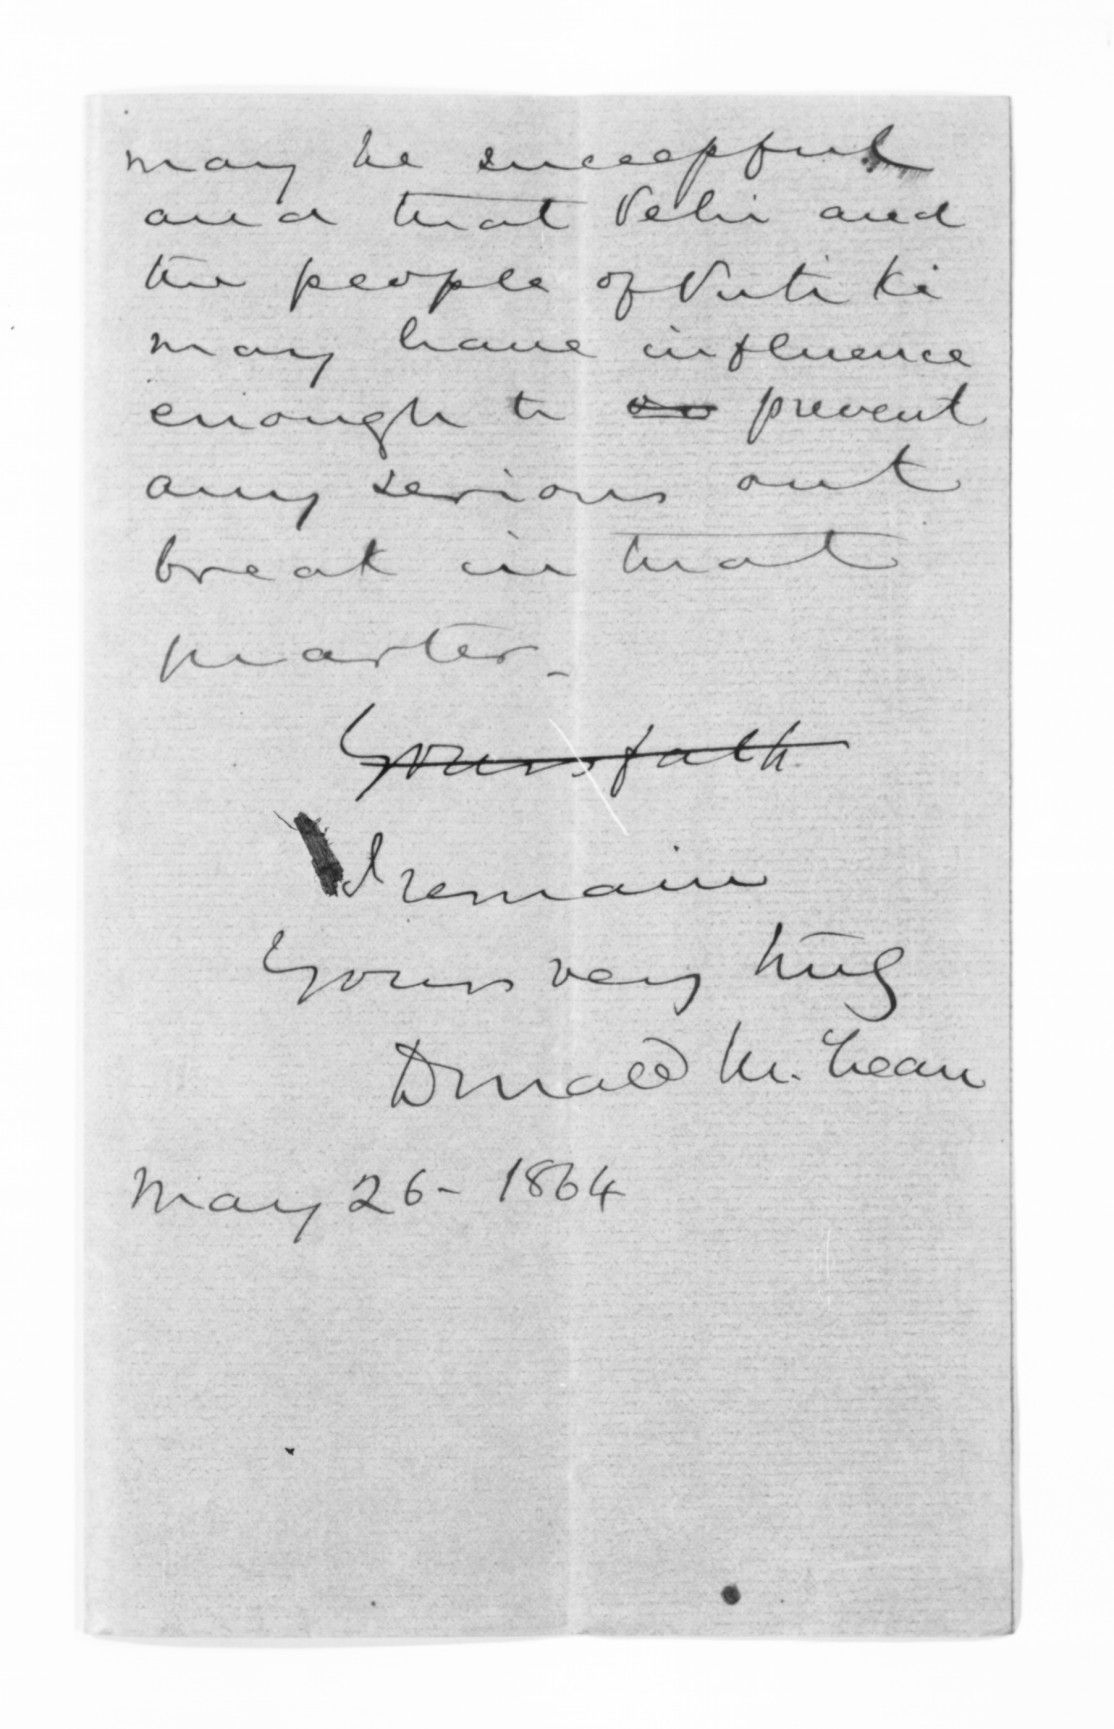 may be successful
and that Pehi and
the people of Putiki
may have influence
enough to prevent
any serious out
break in that
quarter_
Yours faith
I remain
Yours very truly
Donald McLean
May 26- 1864